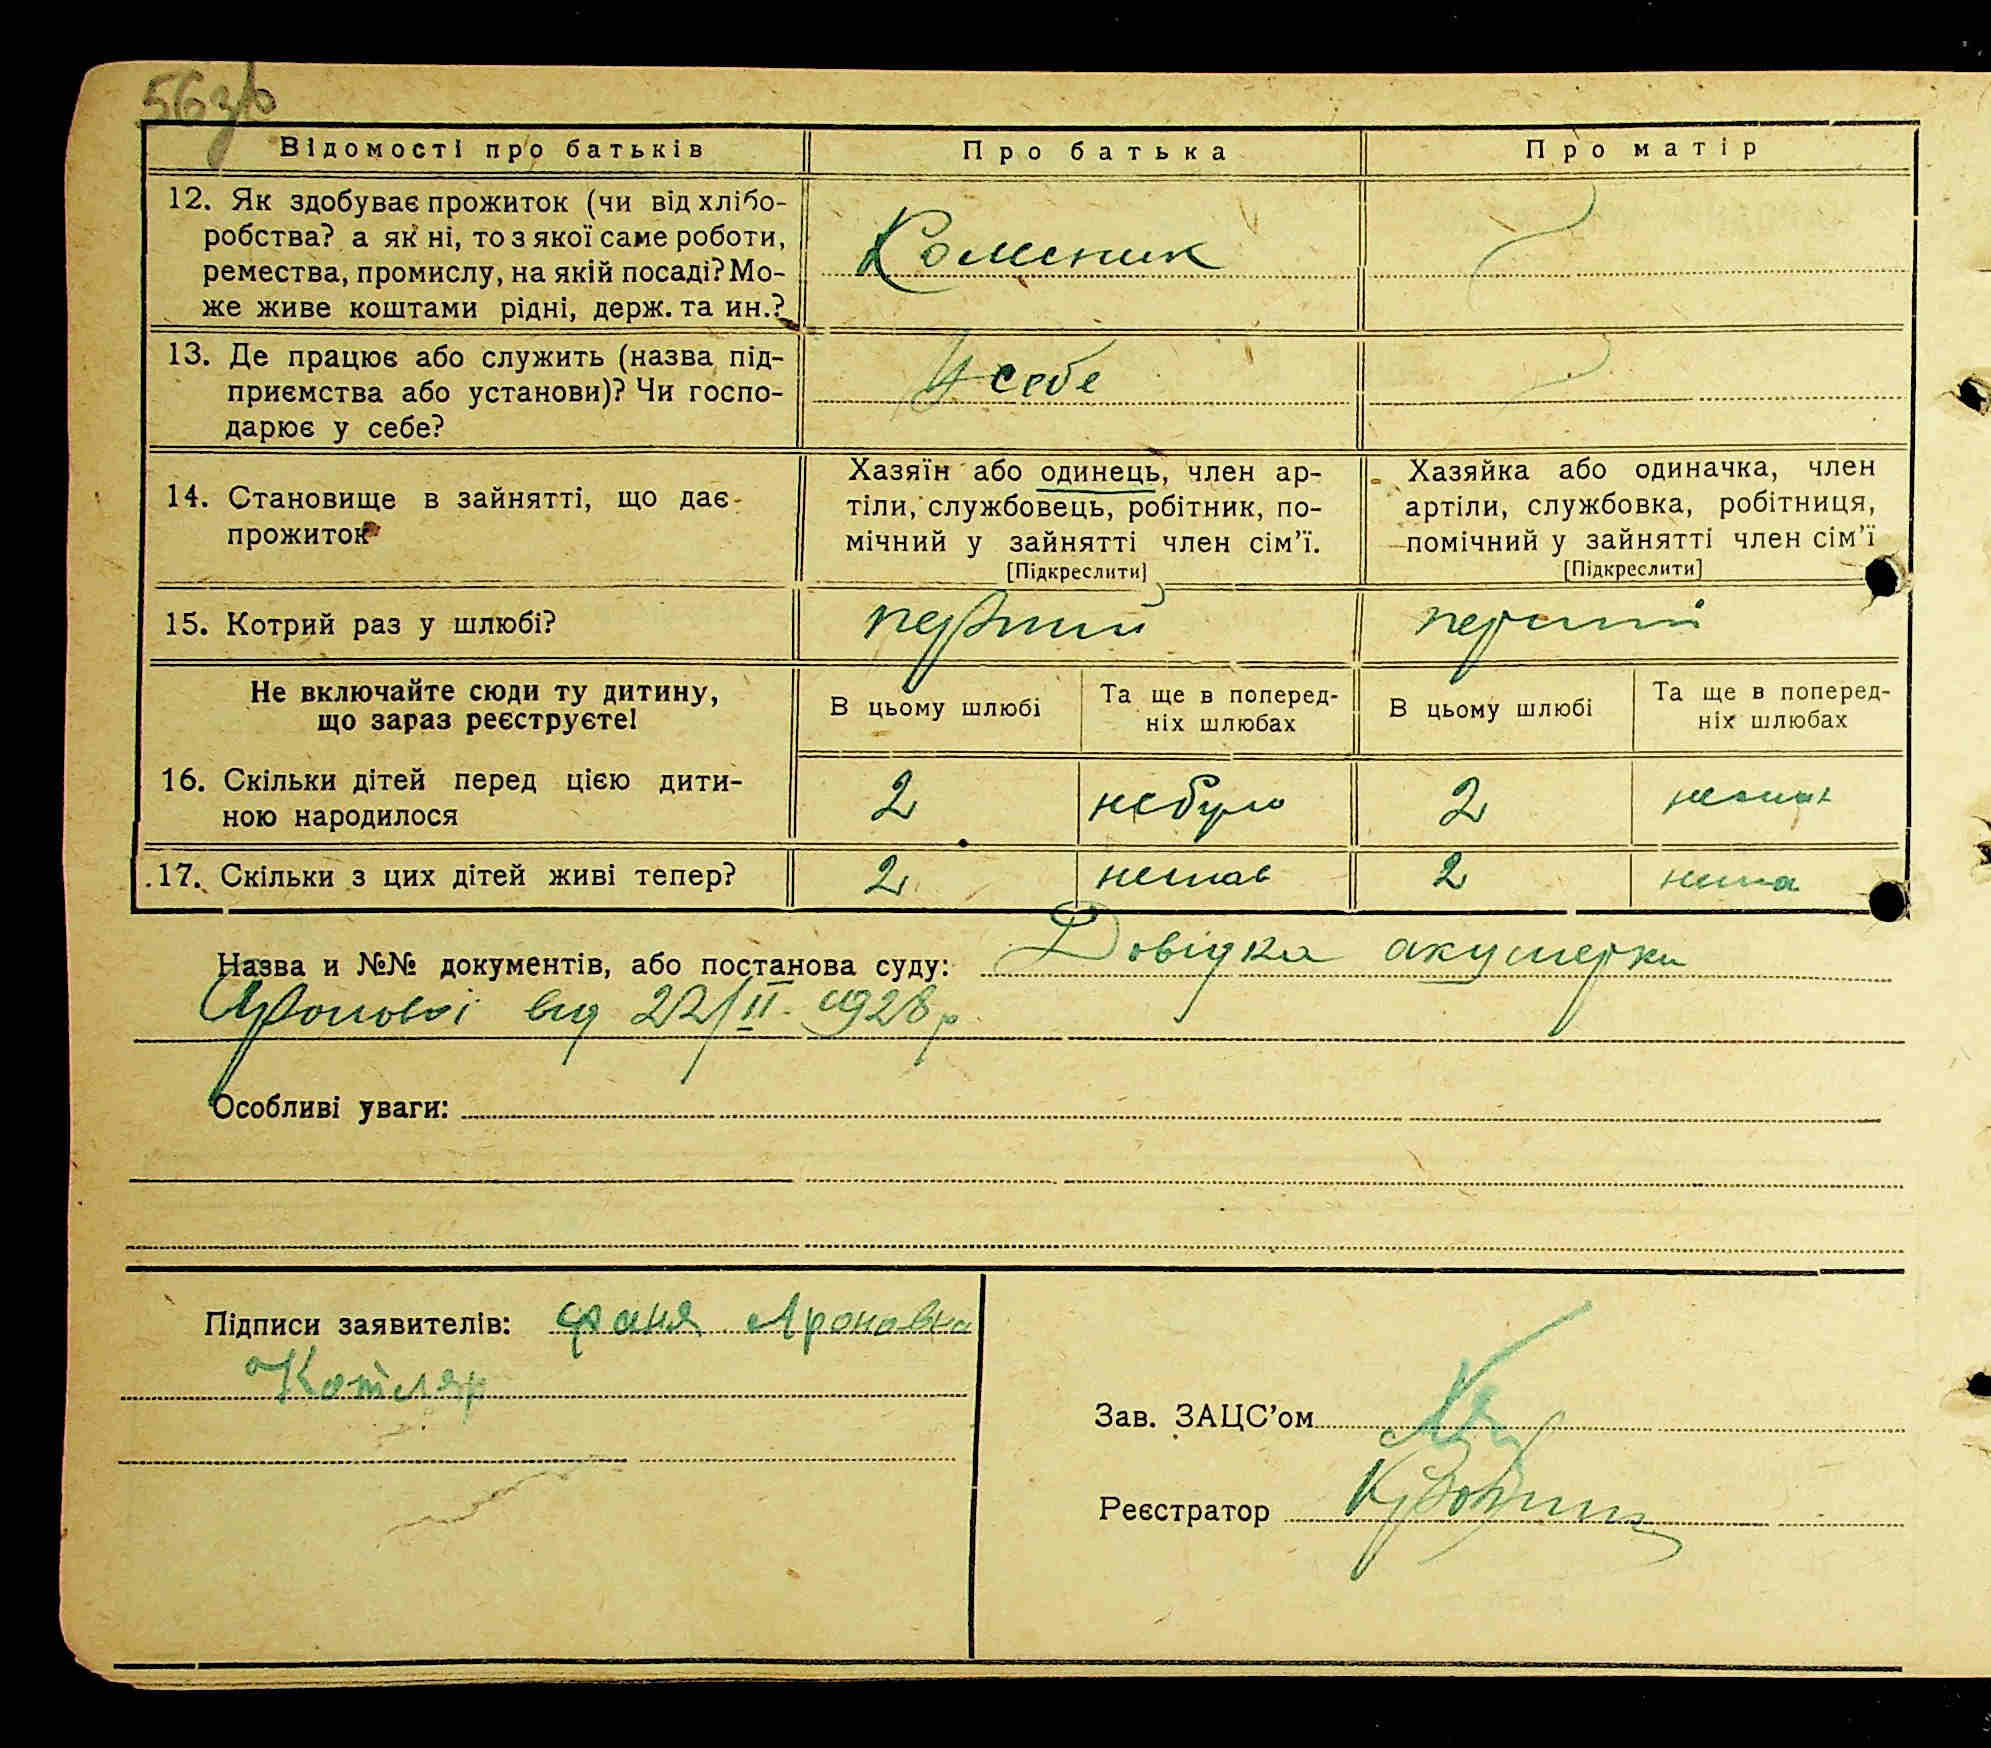 56зв
Відомості про батьків
Про батька
Про матір
12. Як здобуває прожиток (чи від хлібо-
робства? а як ні, то з якої саме роботи,
ремества, промислу, на якій посаді? Мо-
же живе коштами рідні, держ. та ин.?
13. Де працює або служить (назва під-
приємства або установи)? Чи госпо-
дарює у себе?
У себе
14. Становище в зайнятті, що дає
прожиток
Хазяїн або одинець, член ар-
тіли, службовець, робітник, по-
мічний у зайнятті член сім'ї.
[Підкреслити]
Хазяйка або одиначка, член
артіли, службовка, робітниця,
помічний у зайнятті член сім'ї
[Підкреслити]
15. Котрий раз у шлюбі?
перший
перший
Не включайте сюди ту дитину,
що зараз реєструєте!
В цьому шлюбі
Та ще в поперед-
ніх шлюбах
В цьому шлюбі
Та ще в поперед-
ніх шлюбах
16. Скільки дітей перед цією дити-
ною народилося
2
небуло
2
17. Скільки з цих дітей живі тепер?
2
2
нема
Назва и №№ документів, або постанова суду: Довідка акушерки
від 22/II 1928 р
Особливі уваги:
Підписи заявителів: Фаня Ароновна
Котляр
Зав. ЗАЦС'ом
Реєстратор